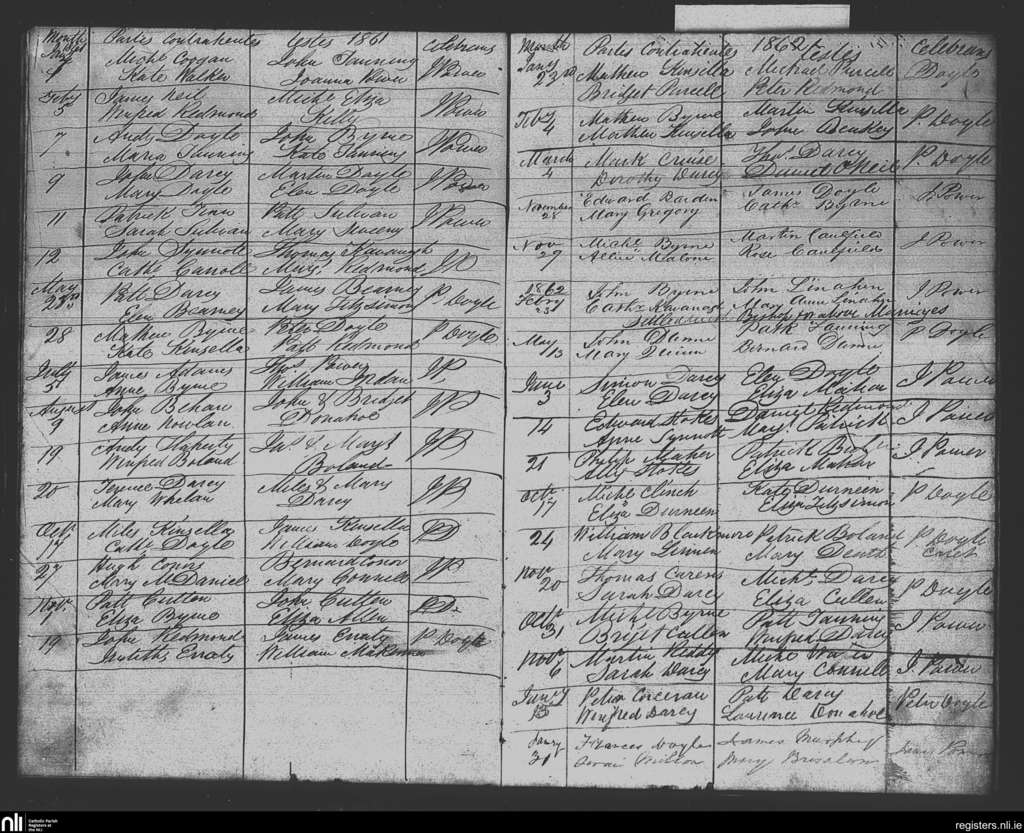 Month Partes Contrahentes Testes 1861 Celebrans
Michl Coogan John Fanning
Kate Walker Joanna Power J Power
Feby James Neil Michl Eliza
5 Winfred Redmond Kelly J Power
7 Andy Doyle John Byrne
Maria Fanning Kate Fanning J Power
9 John Darcy Martin Doyle
Mary Doyle Elen Doyle J Power
11 Patrick Patt Sulivan
Sarah Sulivan Mary J Power
12 John Synnott Thomas Kavanagh
Cathe Carroll Mary Redmond JP
May Patt Darcy James Bearney
23rd Elen Bearney Mary Fitzsimon P Doyle
28 Mathew Byrne Peter Doyle
Kate Kinsella Patt Redmond P Doyle
July James Adams Thos Power
5 Anne Byrne William Jordan JP
August John Behan John & Bridget
9 Anne Nowlan Donahoe JP
19 Andy Jas & Mary
Winfred Boland Boland JP
20 Terence Darcy Miles & Mary
Mary Whelan Darcy JP
Oct Miles Kinsella James Kinsella
17 Cathe Doyle William Doyle PD
27 Hugh Bernard Conor
Mary McDaniel Mary Connell JP
Novr Patt Cullen John Cullen
Eliza Byrne Eliza Allen PD
19 John Redmond James Eraty
Eraty William P Doyle
Month Partes Contrahentes 1862 Testes Celebrans
Jany Mathew Kinsella Michael Purcell Doyle
23rd Bridget Purcell Peter Redmond
Feby Mathew Byrne Martin Kinsella P. Doyle
4 Mathew Kinsella John
March Mark Cruise Thos Darcy P Doyle
4 Dorothy Darcy Daniel O'Neil
November Edward James Doyle J. Power
28 Mary Gregory Cathe Byrne
Nov Michl Byrne Martin Caulfield J Power
29 Allice Malone Rose Caulfield
1862 John Byrne John Linahan J Power
Febry Cathe Kavanagh Mary Anne Linahan
25 Bishop for above Marriages
May John Dunne Patk Fanning P Doyle
13 Mary Bernard Dunne
June Simon Darcy Elen Doyle J Power
3 Elen Darcy Eliza
14 Edward Stokes Daniel Redmond J Power
Anne Synnott Mary Patrick
21 Philip Maher Patrick J Power
Stokes Eliza Maher
Octr Michl Clinch Kate Durneen P Doyle
17 Eliza Durneen Eliza Fitzsimon
24 William Blackmore Patrick Boland P Doyle
Mary Mary
Novr Thomas Michl Darcy P Doyle
20 Sarah Darcy Eliza Cullen
Octr Michl Byrne Patt Fanning J Power
31 Bridget Cullen Winfred Darcy
Novr Martin Reddy Michl J. Power
6 Sarah Darcy Mary Connell
Jany Peter Corcoran Patt Darcy Peter Doyle
13 Winfred Darcy Laurence Donahoe
Jany Frances Doyle James Murphy James Power
31 Mary
nli Catholic Parish
Registers at
the NLI
registers.nli.ie